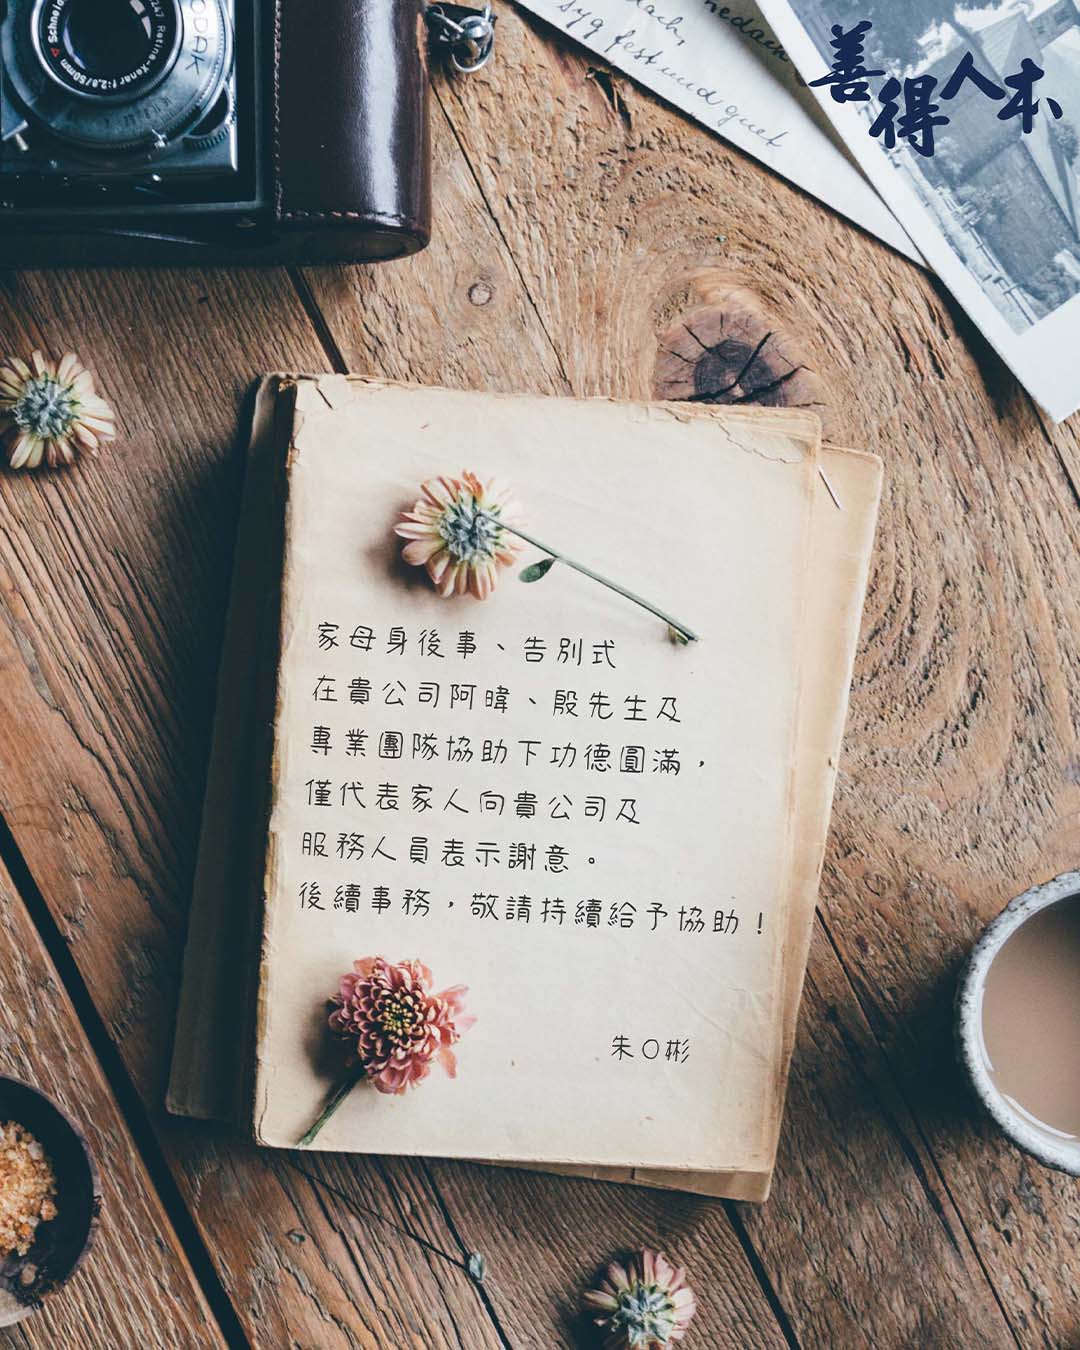 善得人本
Schneid
247 Retina-Xenar f:2,8/50mm
KODAK
fest und guet
家母身後事、告別式
在貴公司阿暐、殷先生及
專業團隊協助下功德圓滿，
僅代表家人向貴公司及
服務人員表示謝意。
後續事務，敬請持續給予協助！
朱〇彬